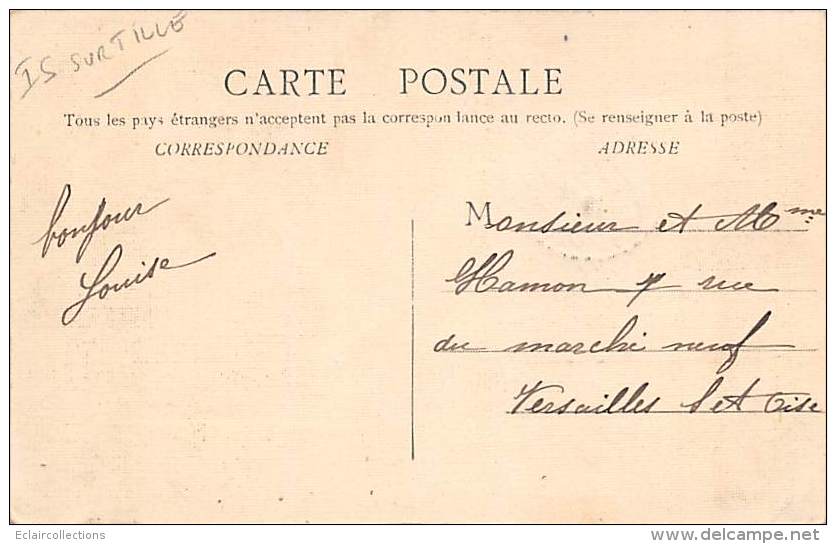 IS SUR TILLE
CARTE POSTALE
Tous les pays étrangers n'acceptent pas la correspon lance au recto. (Se renseigner à la poste)
CORRESPONDANCE
ADRESSE
bonjour
Louise
Monsieur et Mme
Hamon 7 rue
du marché neuf
Versailles S et Oise
Eclaircollections
delcampe.net